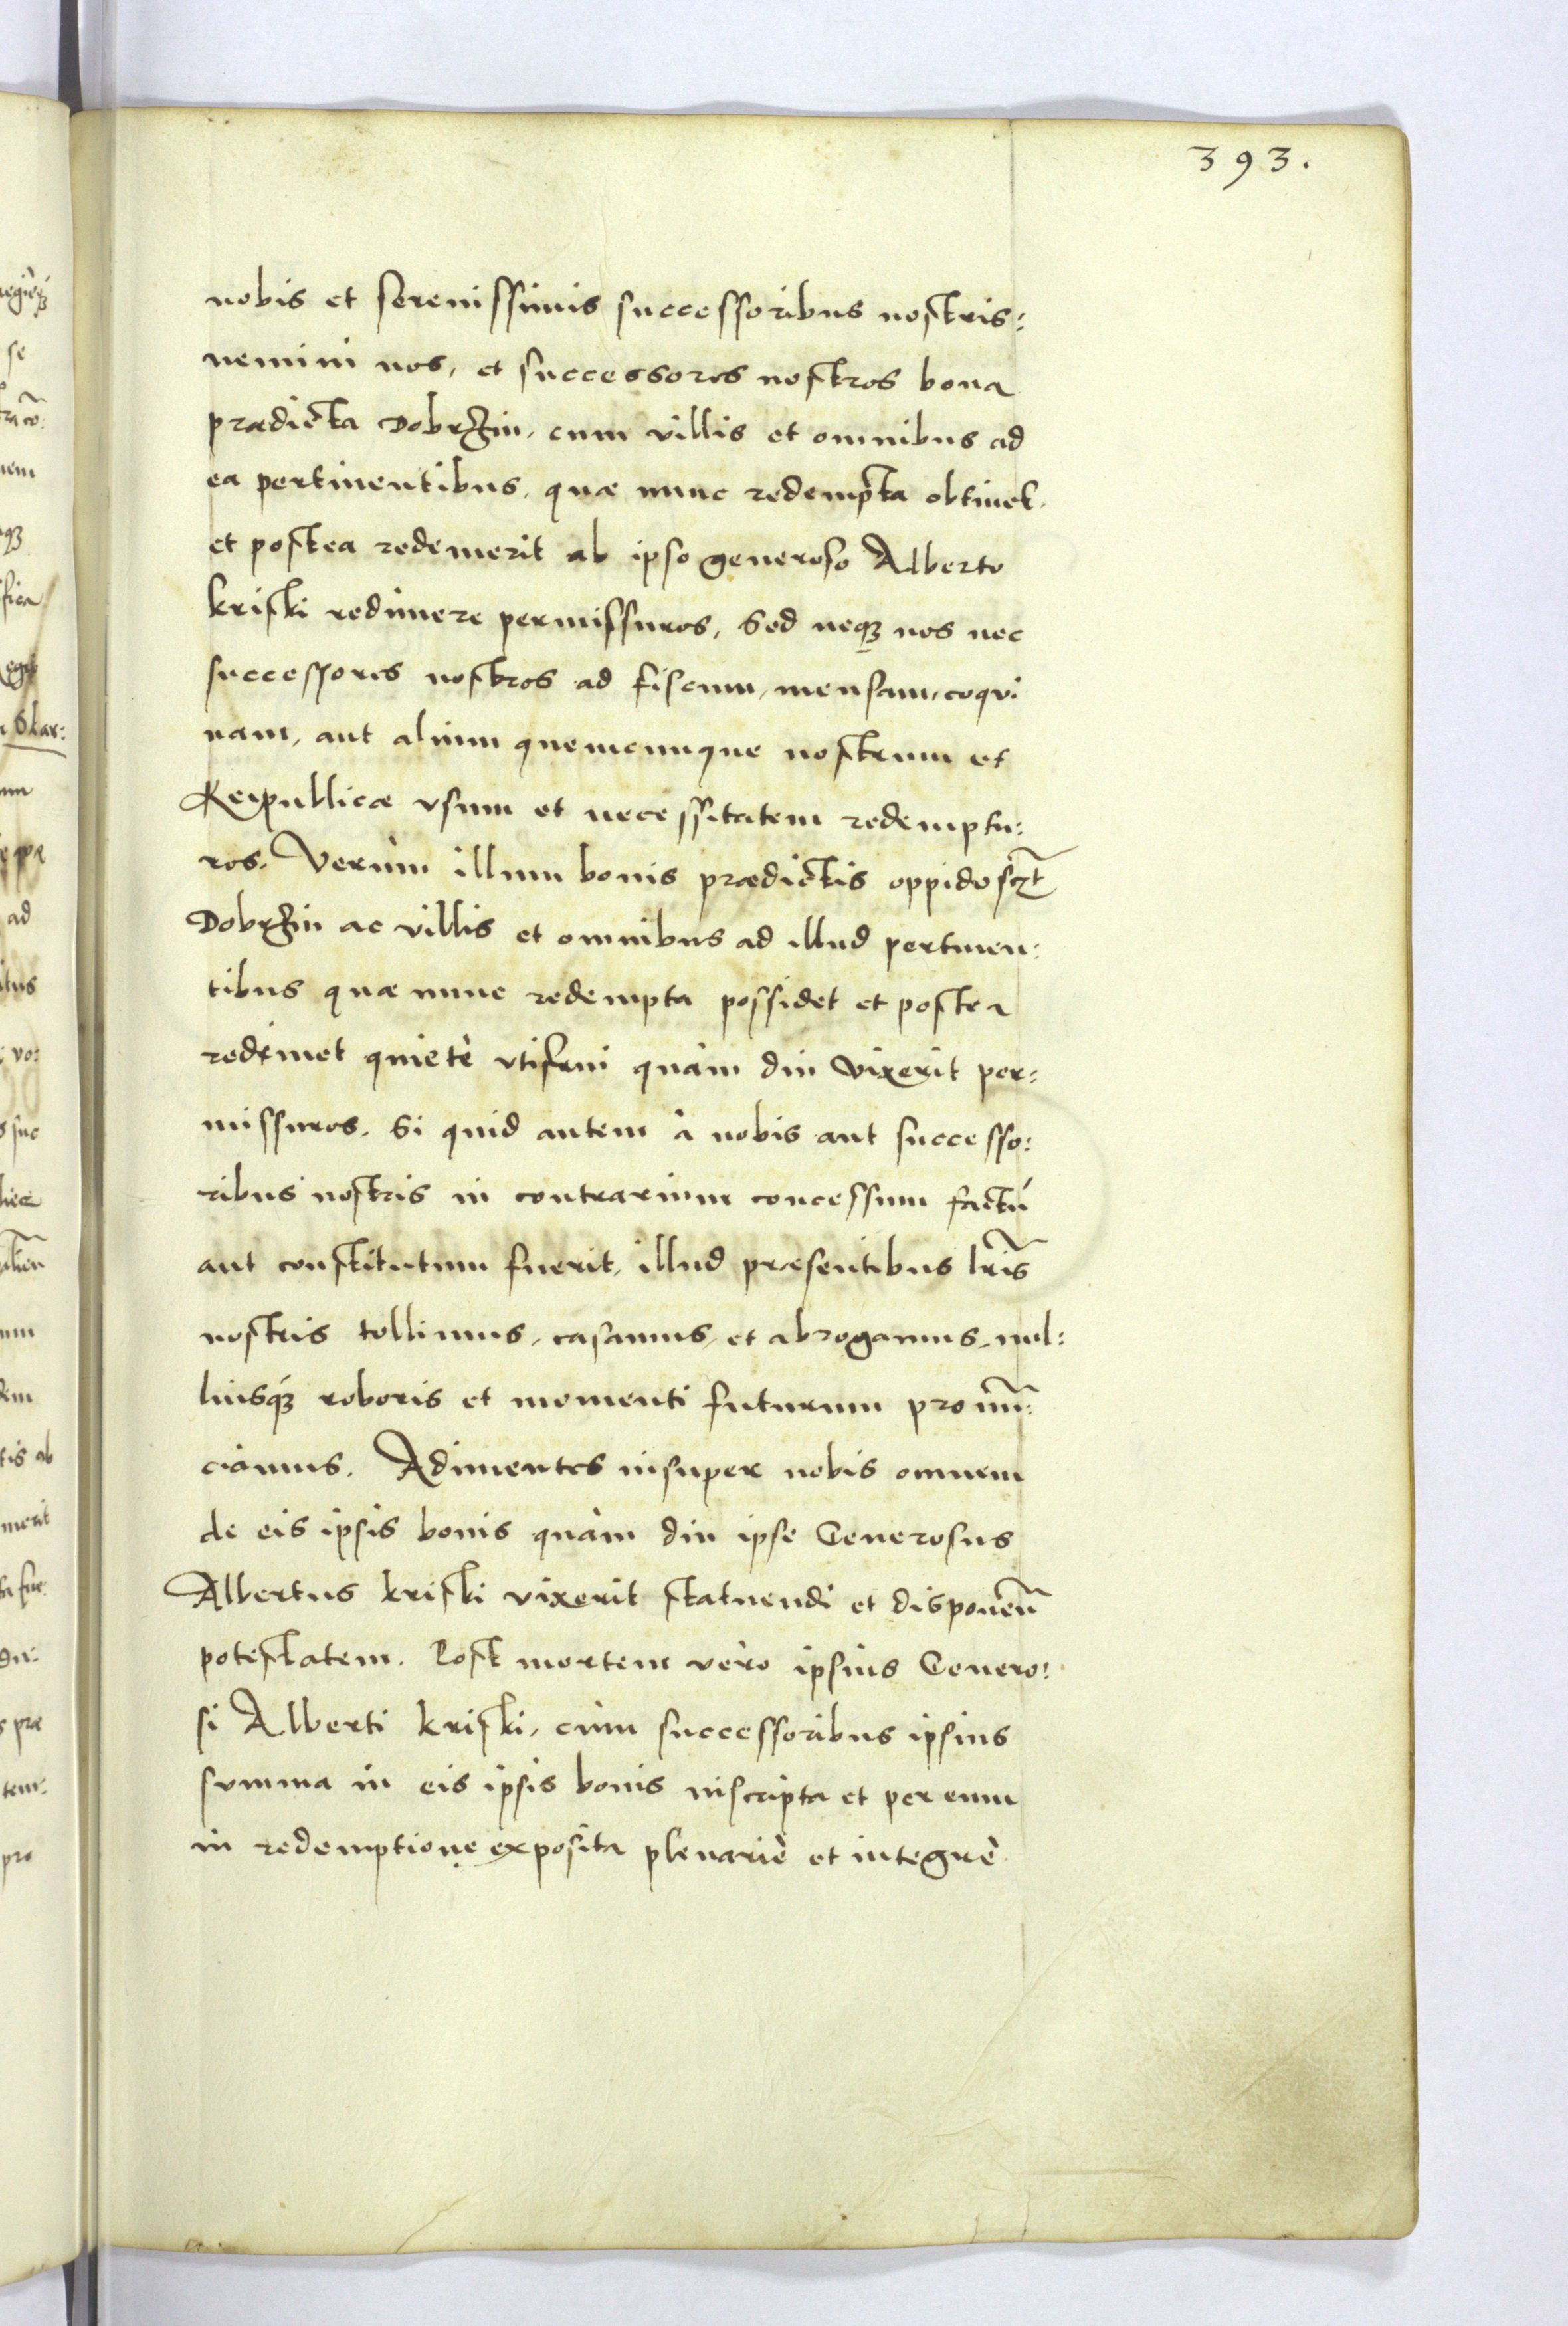 393.
nobis et serenissimis successoribus nostris:
nemini nos, et successores nostros bona
prædicta Dobrzin, cum villis et omnibus ad
ea pertinentibus, quæ nunc redempta obtinet,
et postea redemerit ab ipso generoso Alberto
kriski redimere permissuros, Sed neqꝫ nos nec
successores nostros ad fiscum, mensam, coqui
nam, aut alium quemcunque nostrum et
Reipublicæ vsum et necessitatem redemptu:
ros. Verùm illum bonis prædictis oppido
Dobrzin ac villis et omnibus ad illud pertinen:
tibus quæ nunc redempta possidet et postea
redimet quietè vtifrui quàm diu vixerit per:
missuros. Si quid autem à nobis aut successo:
ribus nostris in contrarium concessum factú
aut constitutum fuerit, illud præsentibus lr̃is
nostris tollimus, casamus, et abrogamus, nul:
liusqꝫ roboris et momenti futurum pronũ:
ciamus. Adimentes insuper nobis omnem
de eis ipsis bonis quàm diu ipse Generosus
Albertus kriski vixerit statuendi et disponeñ
potestatem. Post mortem verò ipsius Genero:
si Alberti kriski, cùm successoribus ipsius
summa in eis ipsis bonis inscripta et per eum
in redemptione exposita plenariè et integrè